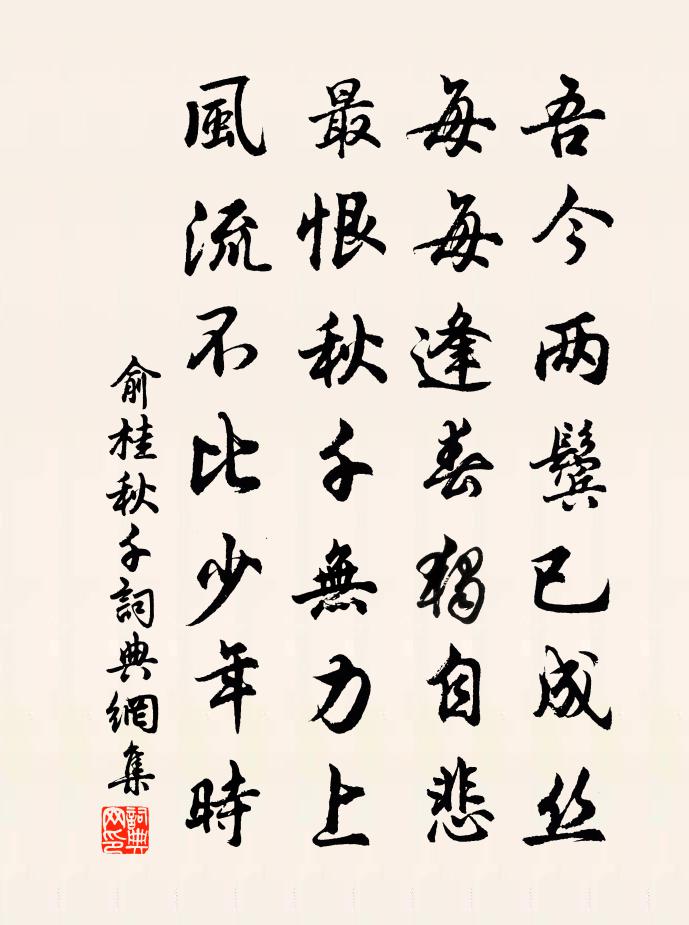 吾今两鬓已成丝
每每逢春独自悲
最恨秋千無力上
風流不比少年時
俞桂秋千詞典網集
詞典網印